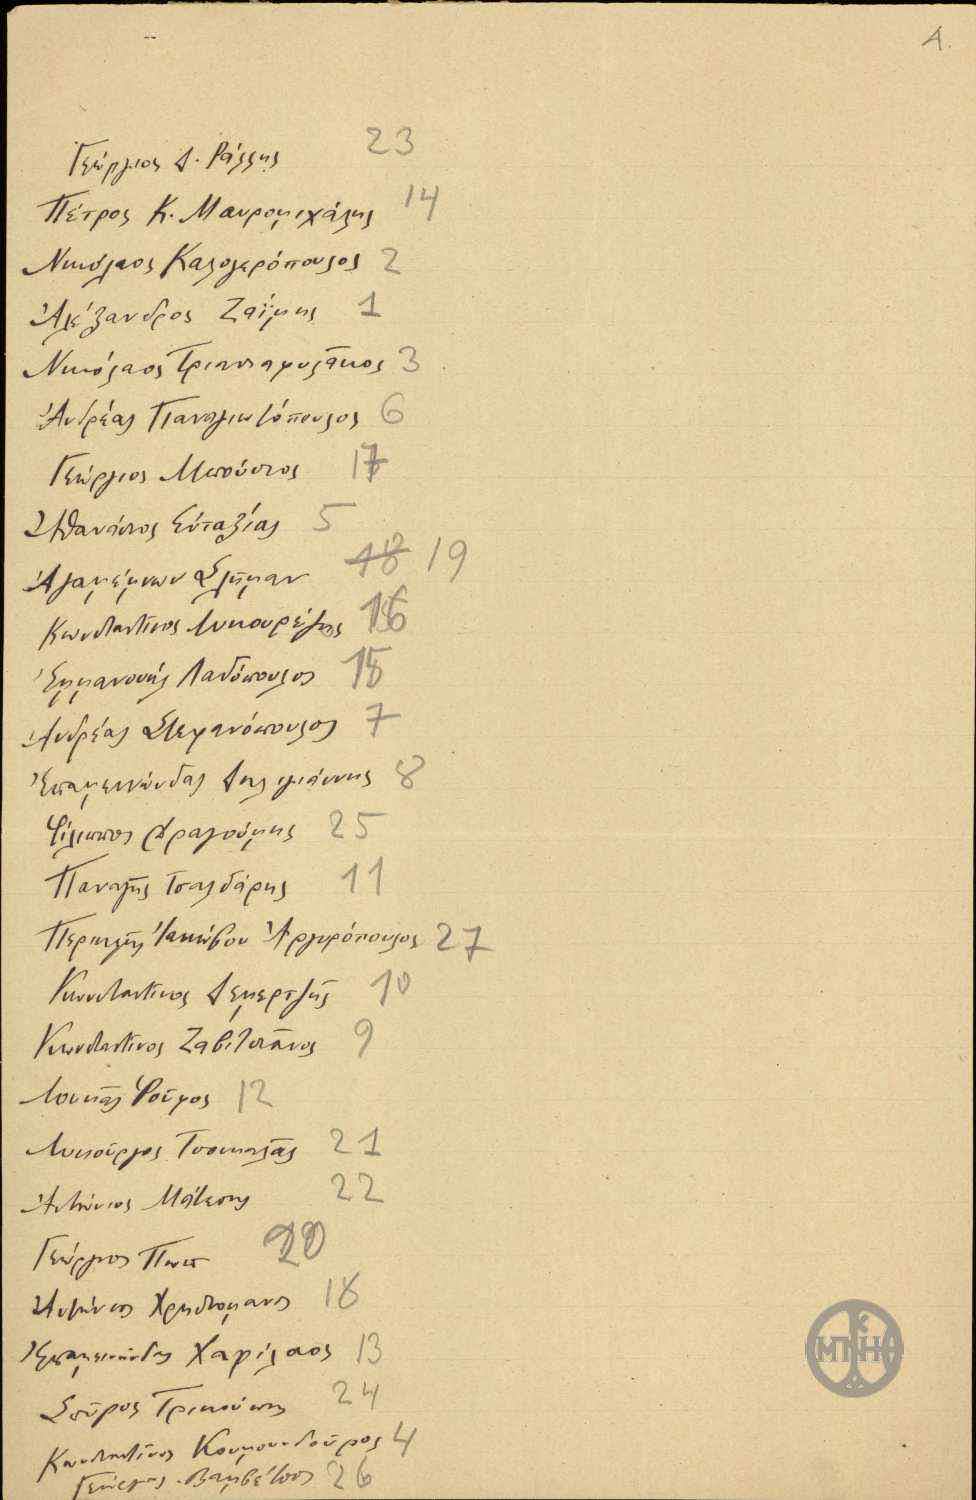 Α.
Γεώργιος Δ. Ράλλης 23
Πέτρος Κ. Μαυρομιχάλης 14
Νικόλαος Καλογερόπουλος 2
Ἀλέξανδρος Ζαΐμης 1
Νικόλαος Τριανταφυλλάκος 3
Ἀνδρέας Παναγιωτόπουλος 6
Γεώργιος Μπούσιος 17
Ἀθανάσιος Εὐταξίας 5
Ἀγαμέμνων Σλῆμαν 18 19
Κωνσταντῖνος Λυκουρέζος 16
Ἐμμανουὴλ Λαδόπουλος 15
Ἀνδρέας Στεφανόπουλος 7
Ἐπαμεινώνδας Δηλιγιάννης 8
Φίλιππος Δραγούμης 25
Παναγῆς Τσαλδάρης 11
Περικλῆς Ἰακώβου Ἀργυρόπουλος 27
Κωνσταντῖνος Δεμερτζῆς 10
Κωνσταντῖνος Ζαβιτσᾶνος 9
Λουκᾶς Ῥοῦφος 12
Λυκοῦργος Τσουκαλᾶς 21
Ἀντώνιος Μάτεσης 22
Γεώργιος Πωπ 20
Ἀντώνιος Χρηστομάνος 18
Ἐπαμεινώνδας Χαρίλαος 13
Σπῦρος Τρικούπης 24
Κωνσταντῖνος Κουμουνδοῦρος 4
Γεώργιος Βαμβέτσος 26
ΜΠΗ